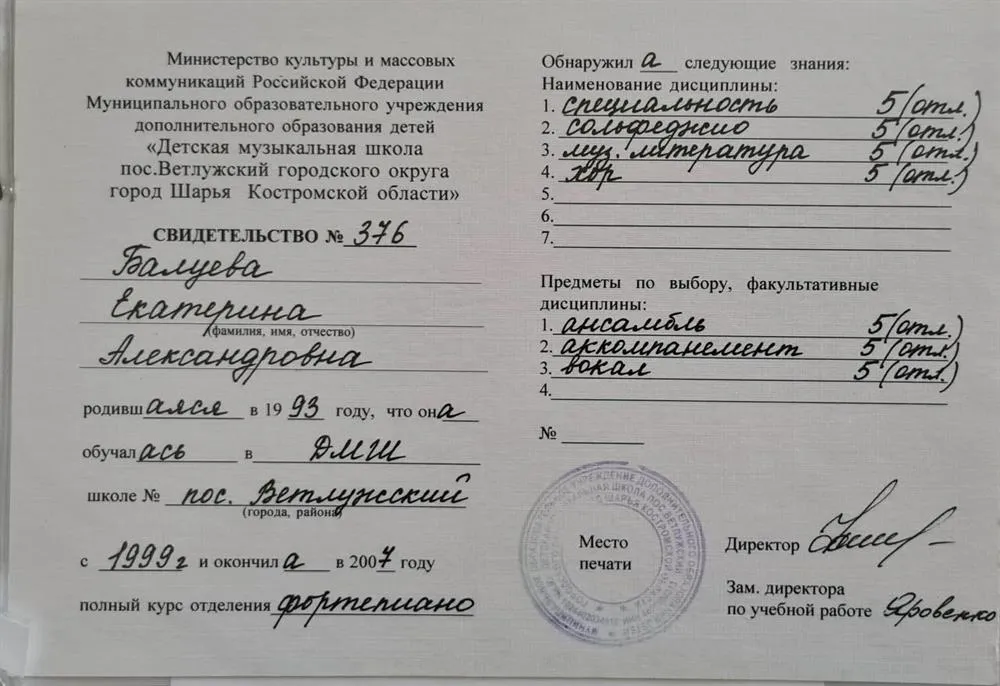 Министерство культуры и массовых
коммуникаций Российской Федерации
Муниципального образовательного учреждения
дополнительного образования детей
«Детская музыкальная школа
пос.Ветлужский городского округа
город Шарья Костромской области»
СВИДЕТЕЛЬСТВО № 376
Балуева
Екатерина
(фамилия, имя, отчество)
Александровна
родивш аяся в 19 93 году, что она
обучал ась в ДМШ
школе № пос. Ветлужсский
(города, района)
с 1999 г и окончил а в 2007 году
полный курс отделения фортепиано
Обнаружил а следующие знания:
Наименование дисциплины:
1. специальность 5 (отл.)
2. сольфеджио 5 (отл.)
3. муз. литература 5 (отл.)
4. хор 5 (отл.)
5.
6.
7.
Предметы по выбору, факультативные
дисциплины:
1. ансамбль 5 (отл.)
2. аккомпанемент 5 (отл.)
3. вокал 5 (отл.)
4.
№
Место
печати
Директор
Зам. директора
по учебной работе Яровенко